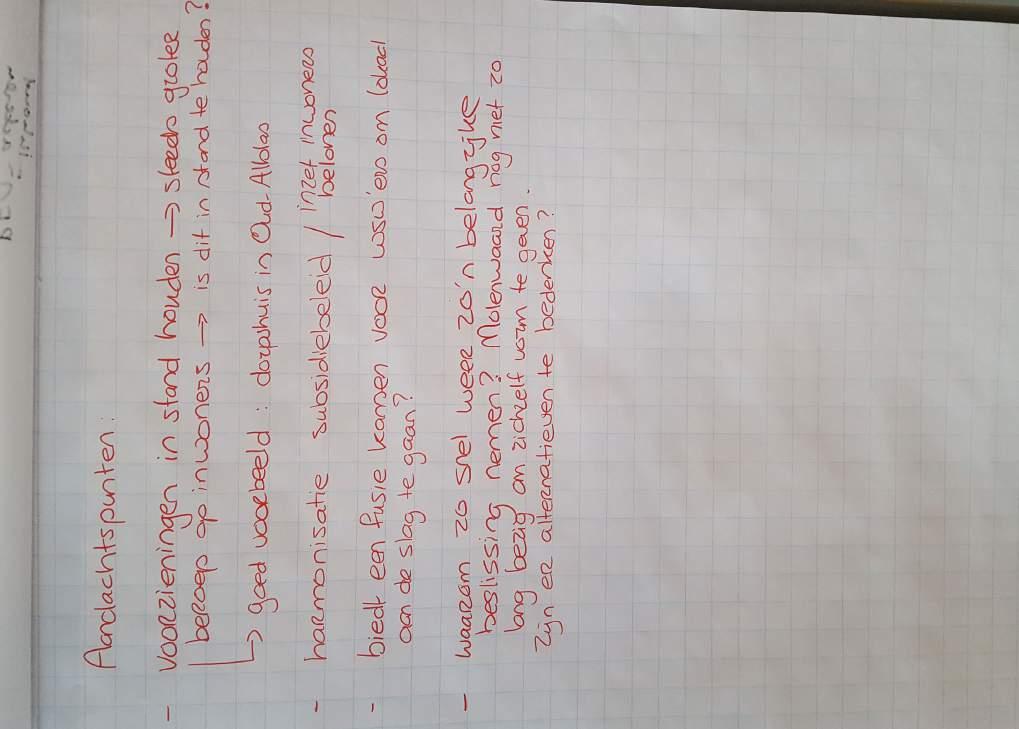 Aandachtspunten:
- voorzieningen in stand houden → steeds groter
beroep op inwoners → is dit in stand te houden?
↳ goed voorbeeld: dorpshuis in Oud-Alblas
- harmonisatie subsidiebeleid / inzet inwoners
belonen
- biedt een fusie kansen voor WSW'ers om lokaal
aan de slag te gaan?
- waarom zo snel weer zo'n belangrijke
beslissing nemen? Molenwaard nog niet zo
lang bezig om zichzelf vorm te geven.
Zijn er alternatieven te bedenken?